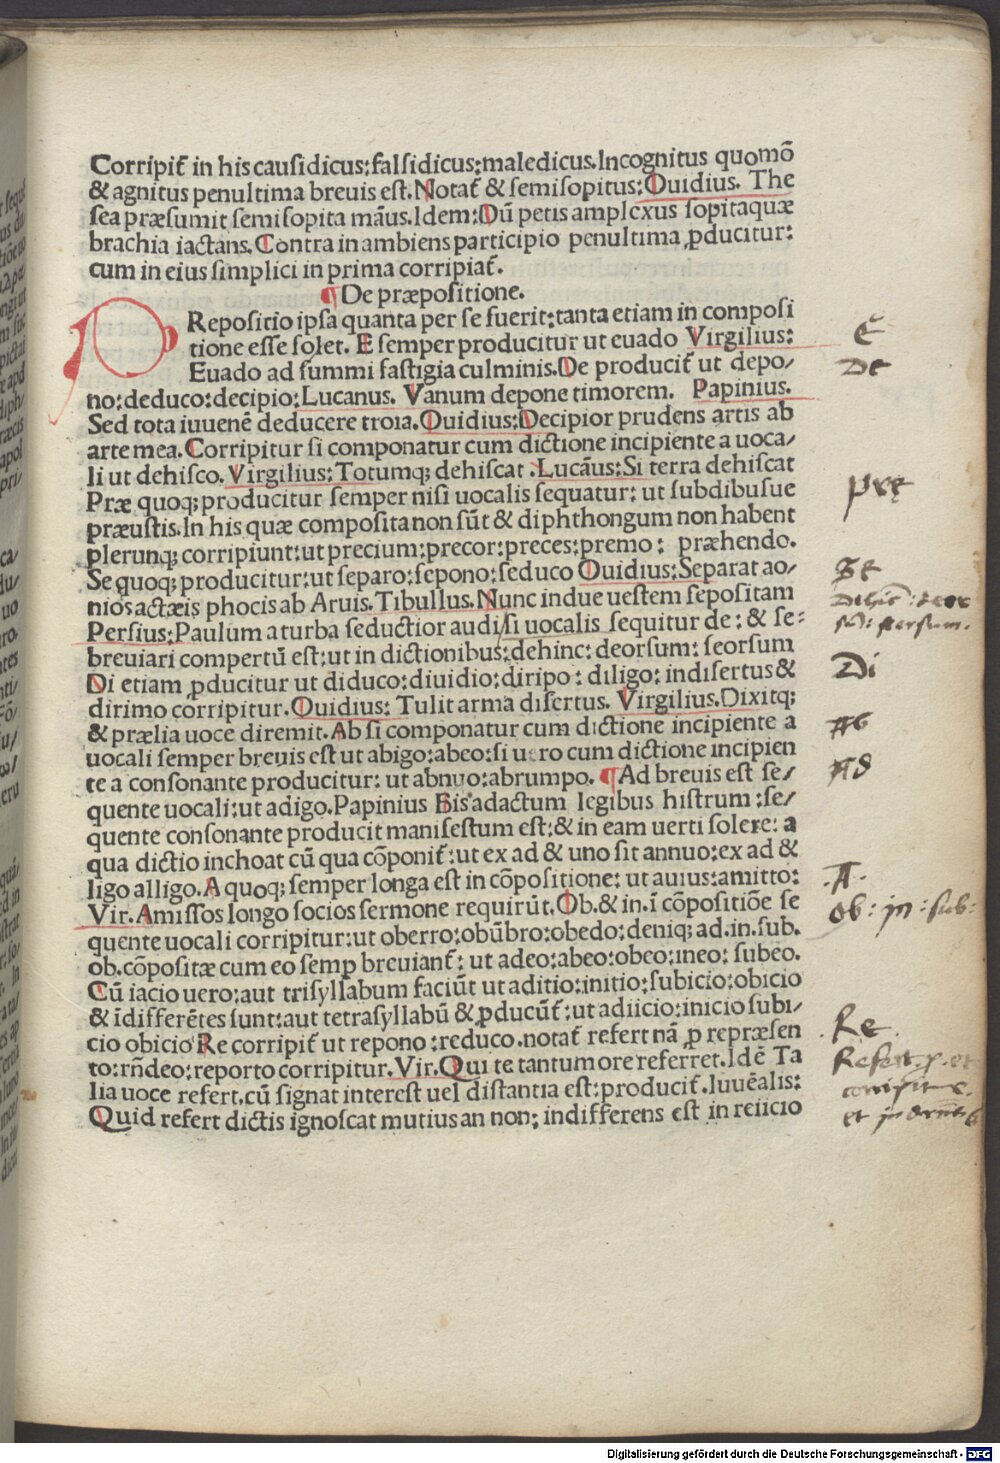 Corripit᷑ in his causidicus:falsidicus:maledicus.Incognitus quomō
& agnitus penultima breuis est.Notat᷑ & semisopitus:Ouidius. The
sea præsumit semisopita māus.Idem:Dū petis amplexus sopitaquæ
brachia iactans.Contra in ambiens participio penultima ꝓducitur:
cum in eius simplici in prima corripiat᷑.
¶De præpositione.
PRepositio ipsa quanta per se fuerit:tanta etiam in composi
tione esse solet. E semper producitur ut euado Virgilius:
Euado ad summi fastigia culminis.De producit᷑ ut depo/
no:deduco:decipio:Lucanus. Vanum depone timorem. Papinius.
Sed tota iuuenē deducere troia.Ouidius:Decipior prudens artis ab
arte mea.Corripitur si componatur cum dictione incipiente a uoca/
li ut dehisco.Virgilius:Totumqꝫ dehiscat :Lucāus:Si terra dehiscat
Præ quoqꝫ producitur semper nisi uocalis sequatur: ut subdibusue
præustis.In his quæ composita non sūt & diphthongum non habent
plerunqꝫ corripiunt:ut precium:precor:preces:premo: præhendo.
Se quoqꝫ producitur:ut separo:sepono:seduco Ouidius:Separat ao/
nios actæis phocis ab Aruis.Tibullus.Nunc indue uestem sepositam
Persius:Paulum a turba seductior audi/si uocalis sequitur de: & se:
breuiari compertū est:ut in dictionibus:dehinc: deorsum: seorsum
Di etiam ꝓducitur ut diduco:diuidio:diripo: diligo: indisertus &
dirimo corripitur.Ouidius: Tulit arma disertus. Virgilius.Dixitqꝫ
& prælia uoce diremit.Ab si componatur cum dictione incipiente a
uocali semper breuis est ut abigo:abeo:si uero cum dictione incipien
te a consonante producitur: ut abnuo:abrumpo. ¶Ad breuis est se/
quente uocali:ut adigo.Papinius Bis adactum legibus histrum :se/
quente consonante producit manifestum est:& in eam uerti solere: a
qua dictio inchoat cū qua cōponit᷑:ut ex ad & uno sit annuo:ex ad &
ligo alligo.A quoqꝫ semper longa est in cōpositione: ut auius:amitto:
Vir.Amissos longo socios sermone requirūt.Ob.& in.ī cōpositiōe se
quente uocali corripitur:ut oberro:obūbro:obedo:deniqꝫ ad.in.sub.
ob.cōpositæ cum eo semp breuiant᷑: ut adeo:abeo:obeo:ineo: subeo.
Cū iacio uero:aut trisyllabum faciūt ut aditio:initio:subicio:obicio
& īdifferētes sunt:aut tetrasyllabū & ꝓducūt᷑:ut adiicio:inicio subi/
cio obicio Re corripit᷑ ut repono :reduco.notat᷑ refert nā ꝓ repræsen
to:rn̄deo:reporto corripitur.Vir.Qui te tantum ore referret.Idē Ta
lia uoce refert.cū signat interest uel distantia est:producit᷑.Iuuēalis:
Quid refert dictis ignoscat mutius an non: indifferens est in reiicio
E
De
prę
Se
Di
Ab
Ad
.A.
ob: in: sub:
Re.
Digitalisierung gefördert durch die Deutsche Forschungsgemeinschaft - DFG